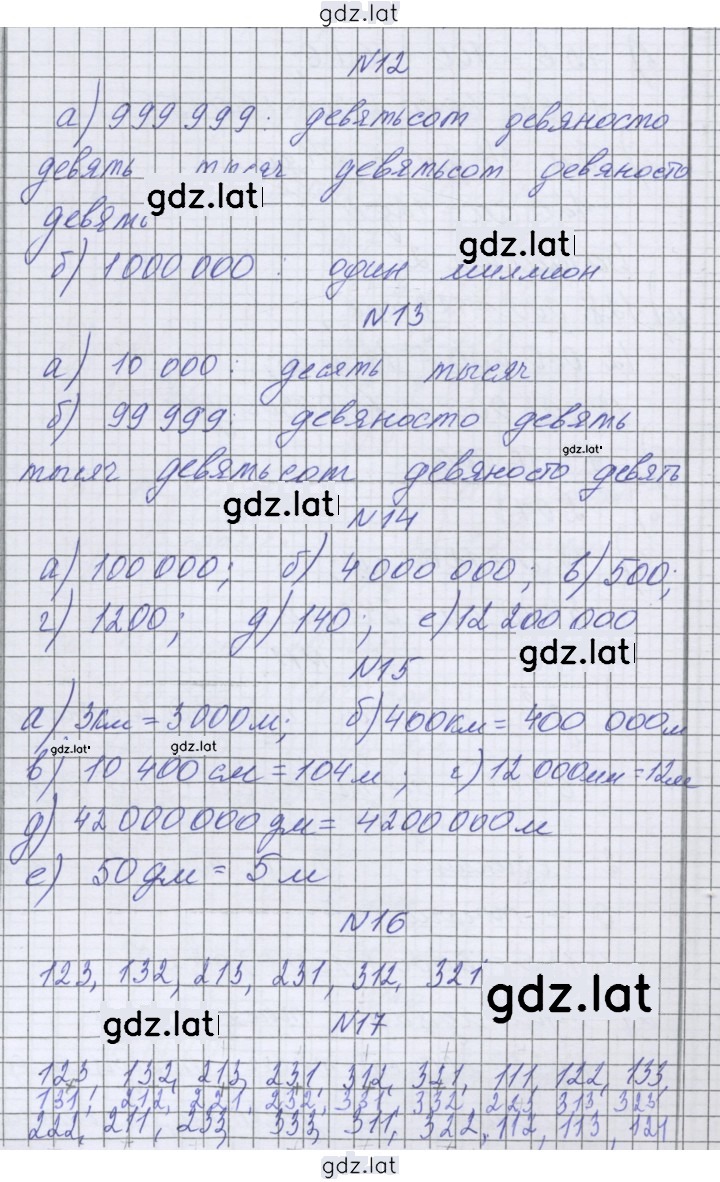 gdz.lat
N12
а) 999 999: девятьсот девяносто
девять тысяч девятьсот девяносто
gdz.lat
девять
gdz.lat
б) 1000 000: один миллион
N13
а) 10 000: десять тысяч
б) 99 999: девяносто девять
gdz.lat
тысяч девятьсот девяносто девять
gdz.lat
N14
а) 100 000; б) 4 000 000; в) 500;
г) 1200; д) 140; е) 12 200 000
gdz.lat
N15
а) 3км = 3000м; б) 400км = 400 000м
gdz.lat gdz.lat
в) 10 400см = 104м; г) 12 000мм = 12м
д) 42 000 000дм = 4200 000м
е) 50дм = 5м
N16
123, 132, 213, 231, 312, 321
gdz.lat
gdz.lat
N17
123, 132, 213, 231, 312, 321, 111, 122, 133,
131, 212, 221, 232, 331, 332, 223, 313, 323,
222, 211, 233, 333, 311, 322, 112, 113, 121
gdz.lat